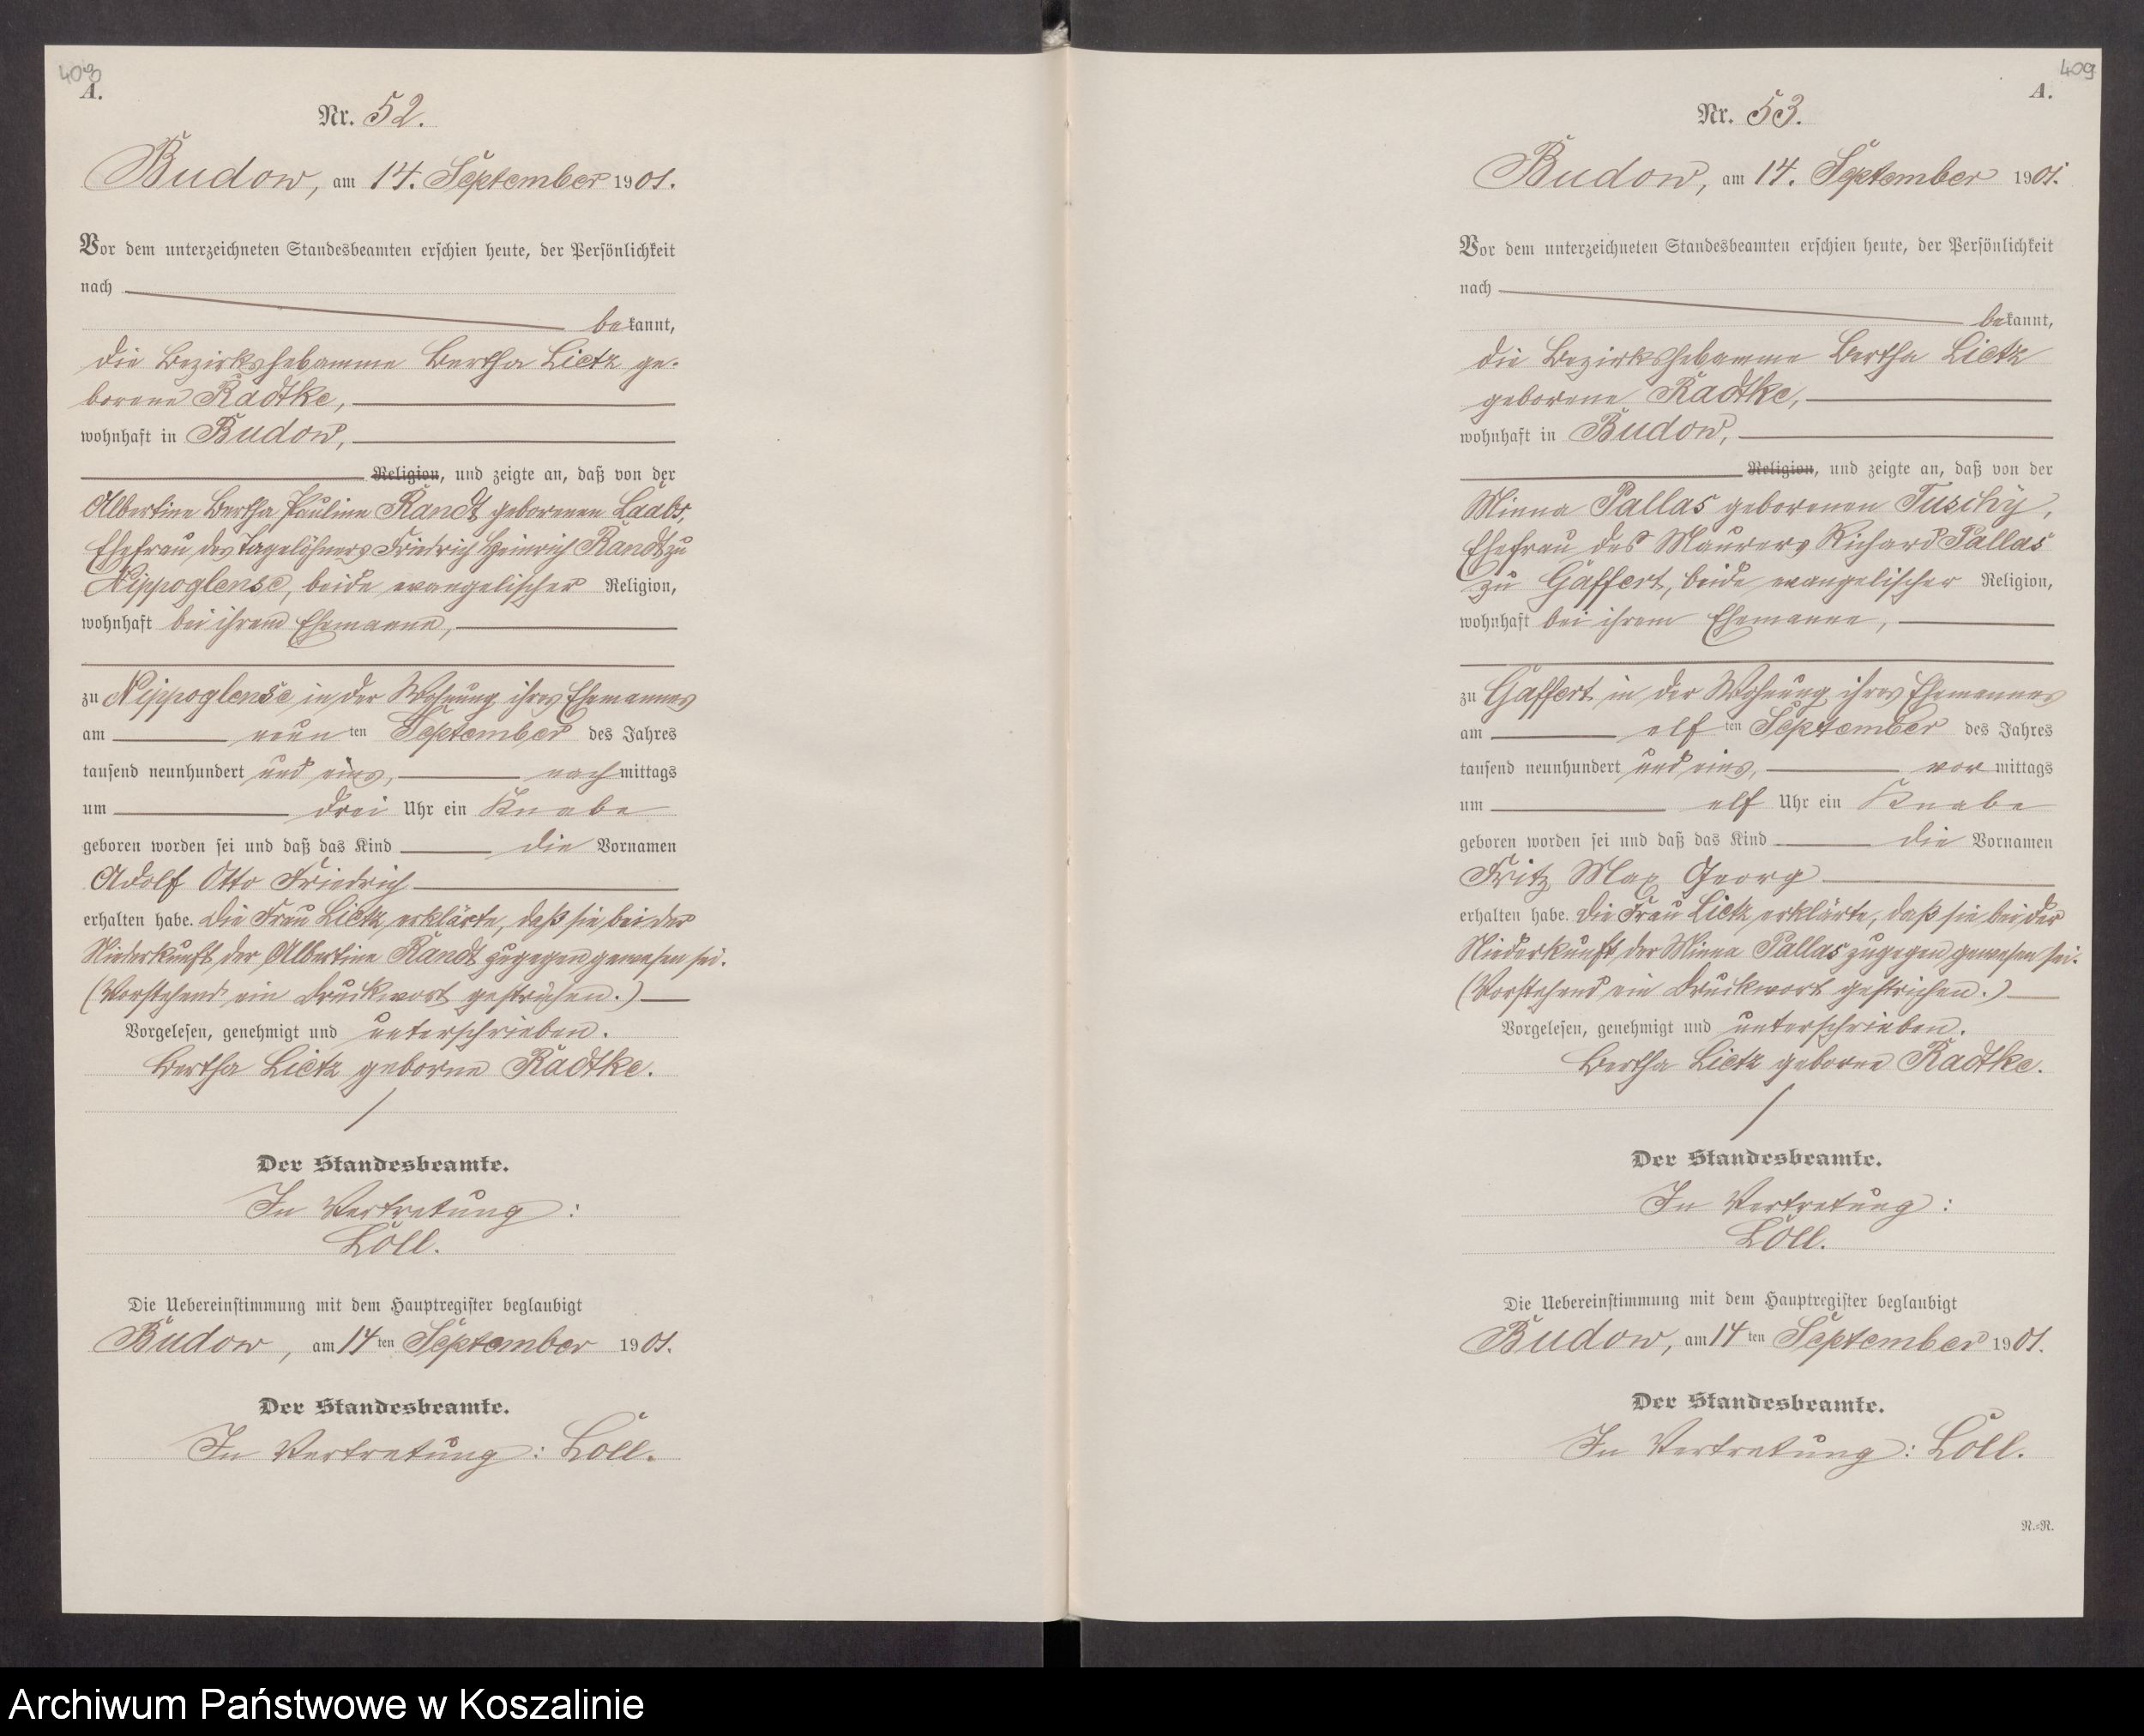 403
A.
Nr. 52.
Budow, am 14. September 1901.
Vor dem unterzeichneten Standesbeamten erschien heute, der Persönlichkeit
nach
bekannt,
die Bezirkshebamme Bertha Lietz ge-
borene Radtke,
wohnhaft in Budow,
Religion, und zeigte an, daß von der
Albertine Bertha Pauline Randt geborenen Laabs,
Ehefrau des Tagelöhners Friedrich Heinrich Randt zu
Nippoglense, beide evangelischer Religion,
wohnhaft bei ihrem Ehemanne,
zu Nippoglense in der Wohnung ihres Ehemannes
am neun ten September des Jahres
tausend neunhundert und eins, nachmittags
um drei Uhr ein Knabe
geboren worden sei und daß das Kind die Vornamen
Adolf Otto Friedrich
erhalten habe. Die Frau Lietz erklärte, daß sie bei der
Niederkunft der Albertine Randt zugegen gewesen sei.
(Vorstehend ein Druckwort gestrichen.)
Vorgelesen, genehmigt und unterschrieben.
Bertha Lietz geborne Radtke.
Der Standesbeamte.
In Vertretung:
Löll.
Die Uebereinstimmung mit dem Hauptregister beglaubigt
Budow, am 14ten September 1901.
Der Standesbeamte.
In Vertretung: Löll.
409
A.
Nr. 53.
Budow, am 14. September 1901.
Vor dem unterzeichneten Standesbeamten erschien heute, der Persönlichkeit
nach
bekannt,
die Bezirkshebamme Bertha Lietz
geborene Radtke,
wohnhaft in Budow,
Religion, und zeigte an, daß von der
Minna Pallas geborenen Tuschy,
Ehefrau des Maurers Richard Pallas
zu Gaffert, beide evangelischer Religion,
wohnhaft bei ihrem Ehemanne,
zu Gaffert in der Wohnung ihres Ehemannes
am elf ten September des Jahres
tausend neunhundert und eins, vormittags
um elf Uhr ein Knabe
geboren worden sei und daß das Kind die Vornamen
Fritz Max Georg
erhalten habe. Die Frau Lietz erklärte, daß sie bei der
Niederkunft der Minna Pallas zugegen gewesen sei.
(Vorstehend ein Druckwort gestrichen.)
Vorgelesen, genehmigt und unterschrieben.
Bertha Lietz geborne Radtke.
Der Standesbeamte.
In Vertretung:
Löll.
Die Uebereinstimmung mit dem Hauptregister beglaubigt
Budow, am 14ten September 1901.
Der Standesbeamte.
In Vertretung: Löll.
N.=N.
Archiwum Państwowe w Koszalinie